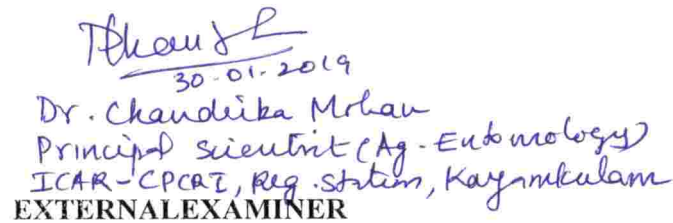 30-01-2019
Dr. Chandrika Mohan
Principal Scientist (Ag. Entomology)
ICAR-CPCRI, Reg. Station, Kayamkulam
EXTERNALEXAMINER